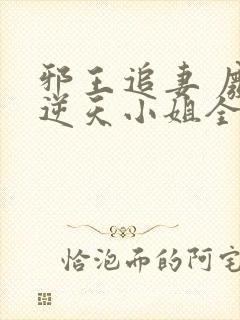 邪王追妻
逆天小姐全
恰泡而的阿宅